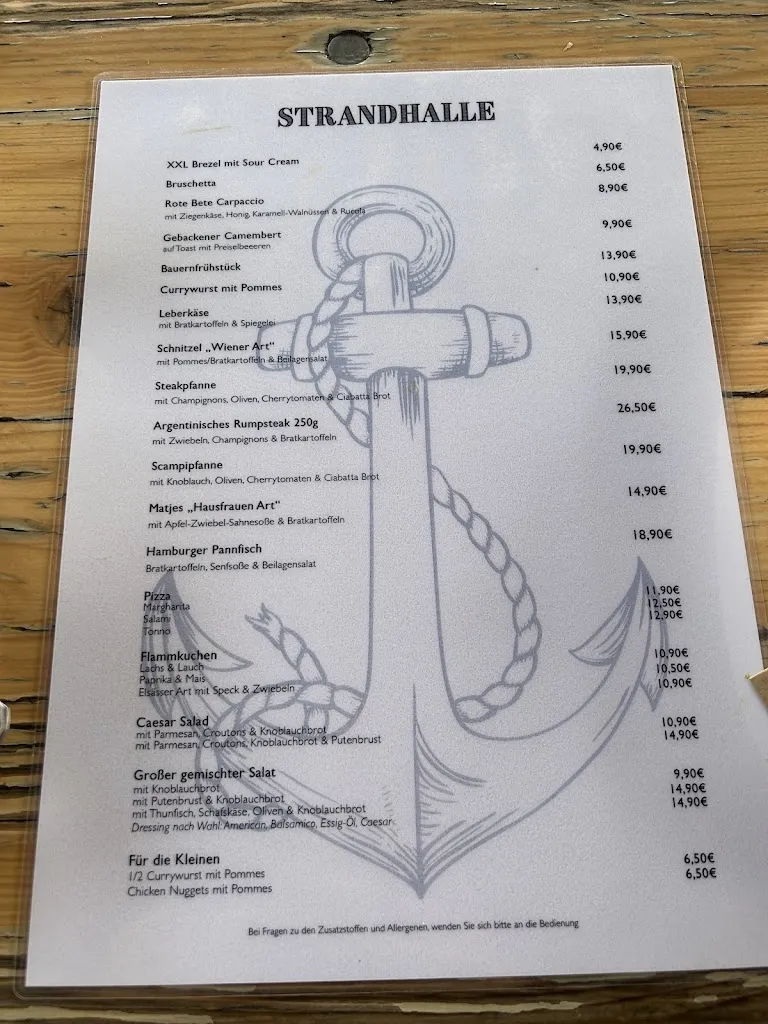 STRANDHALLE
XXL Brezel mit Sour Cream 4,90€
Bruschetta 6,50€
Rote Bete Carpaccio 8,90€
mit Ziegenkäse, Honig, Karamell-Walnüssen & Rucola
Gebackener Camembert 9,90€
auf Toast mit Preiselbeeeren
Bauernfrühstück 13,90€
Currywurst mit Pommes 10,90€
Leberkäse 13,90€
mit Bratkartoffeln & Spiegelei
Schnitzel „Wiener Art“ 15,90€
mit Pommes/Bratkartoffeln & Beilagensalat
Steakpfanne 19,90€
mit Champignons, Oliven, Cherrytomaten & Ciabatta Brot
Argentinisches Rumpsteak 250g 26,50€
mit Zwiebeln, Champignons & Bratkartoffeln
Scampipfanne 19,90€
mit Knoblauch, Oliven, Cherrytomaten & Ciabatta Brot
Matjes „Hausfrauen Art“ 14,90€
mit Apfel-Zwiebel-Sahnesoße & Bratkartoffeln
Hamburger Pannfisch 18,90€
Bratkartoffeln, Senfsoße & Beilagensalat
Pizza
Margharita 11,90€
Salami 12,50€
Tonno 12,90€
Flammkuchen
Lachs & Lauch 10,90€
Paprika & Mais 10,50€
Elsässer Art mit Speck & Zwiebeln 10,90€
Caesar Salad
mit Parmesan, Croutons & Knoblauchbrot 10,90€
mit Parmesan, Croutons, Knoblauchbrot & Putenbrust 14,90€
Großer gemischter Salat
mit Knoblauchbrot 9,90€
mit Putenbrust & Knoblauchbrot 14,90€
mit Thunfisch, Schafskäse, Oliven & Knoblauchbrot 14,90€
Dressing nach Wahl: American, Balsamico, Essig-Öl, Caesar
Für die Kleinen
1/2 Currywurst mit Pommes 6,50€
Chicken Nuggets mit Pommes 6,50€
Bei Fragen zu den Zusatzstoffen und Allergenen, wenden Sie sich bitte an die Bedienung